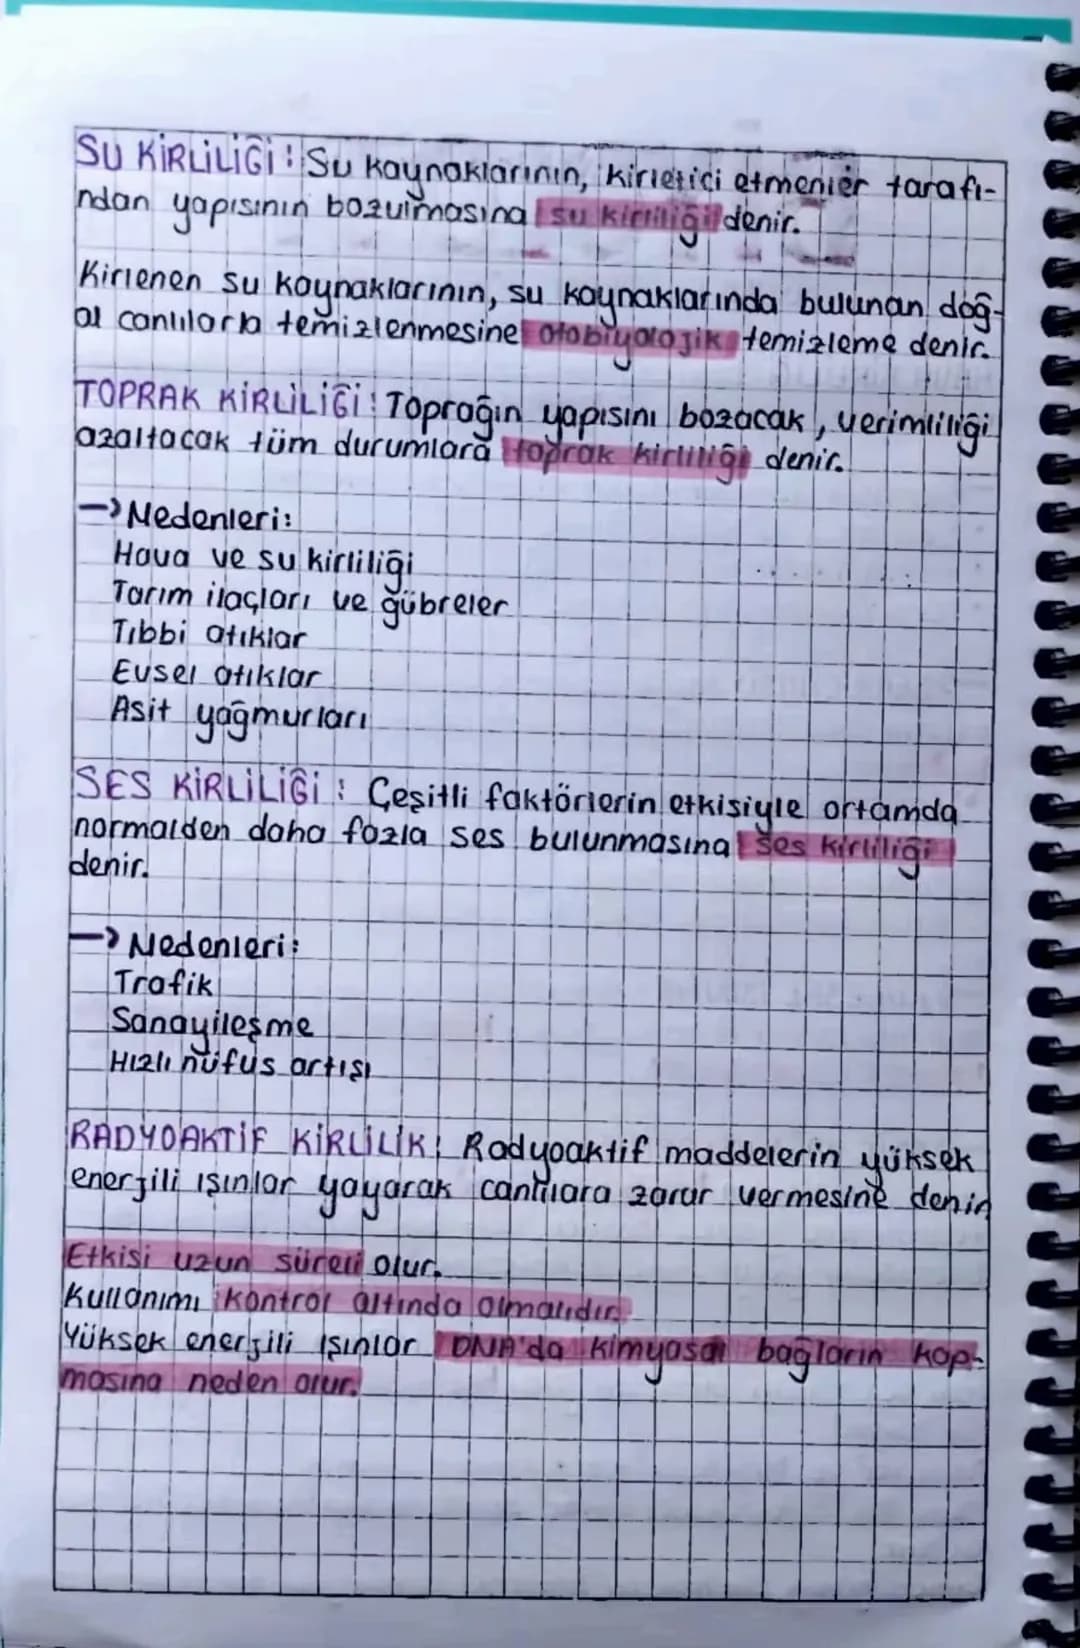 SU KİRLİLİĞİ: Su kaynaklarının, kirletici etmenler tarafı-
ndan yapısının bozulmasına su kirliliği denir.
Kirlenen su kaynaklarının, su kaynaklarında bulunan doğ-
al canlılarla temizlenmesine otobiyolojik temizleme denir.
TOPRAK KİRLİLİĞİ: Toprağın yapısını bozacak, verimliliği
azaltacak tüm durumlara toprak kirliliği denir.
→ Nedenleri:
Hava ve su kirliliği
Tarım ilaçları ve gübreler
Tıbbi atıklar
Evsel atıklar
Asit yağmurları
SES KİRLİLİĞİ: Çeşitli faktörlerin etkisiyle ortamda
normalden daha fazla ses bulunmasına ses kirliliği
denir.
→ Nedenleri:
Trafik
Sanayileşme
Hızlı nüfus artışı
RADYOAKTİF KİRLİLİK: Radyoaktif maddelerin yüksek
enerjili ışınlar yayarak canlılara zarar vermesine denir
Etkisi uzun süreli olur.
Kullanımı kontrol altında olmalıdır.
Yüksek enerjili ışınlar DNA'da kimyasal bağların kop-
masına neden olur.